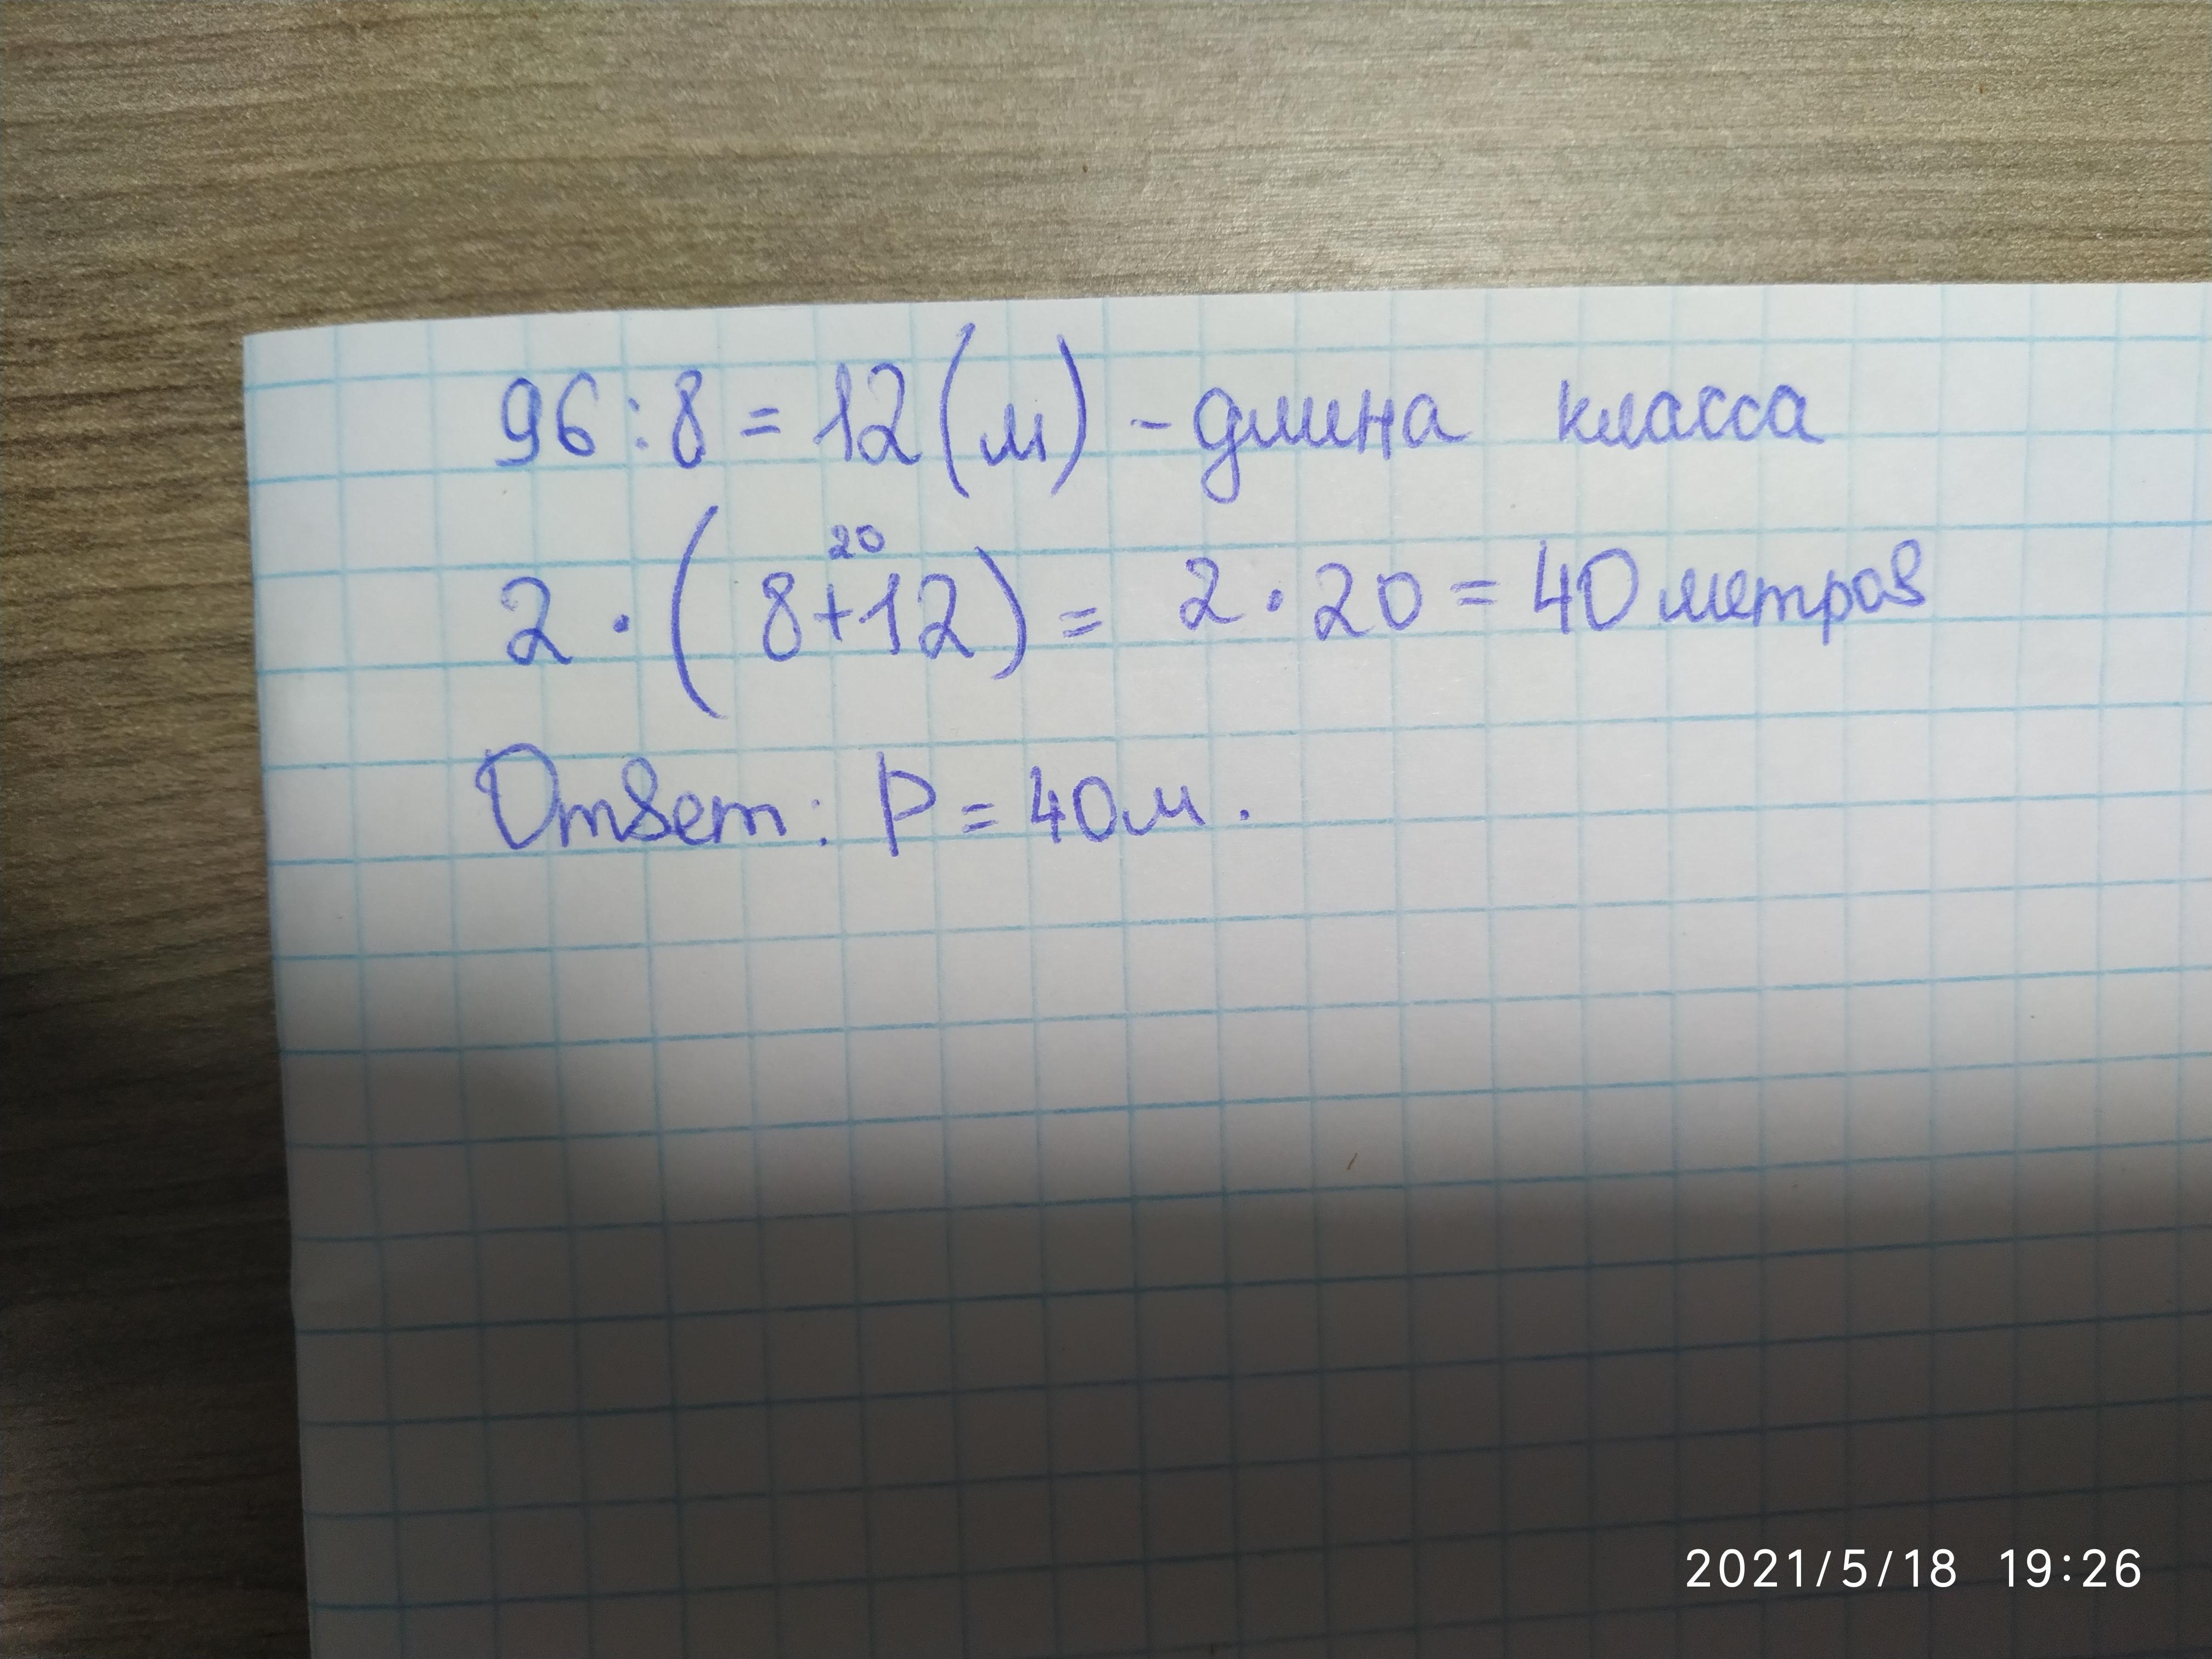 96:8=12(м) - длина класса
20
2·(8+12)= 2·20=40 метров
Ответ: P=40м.
2021/5/18 19:26